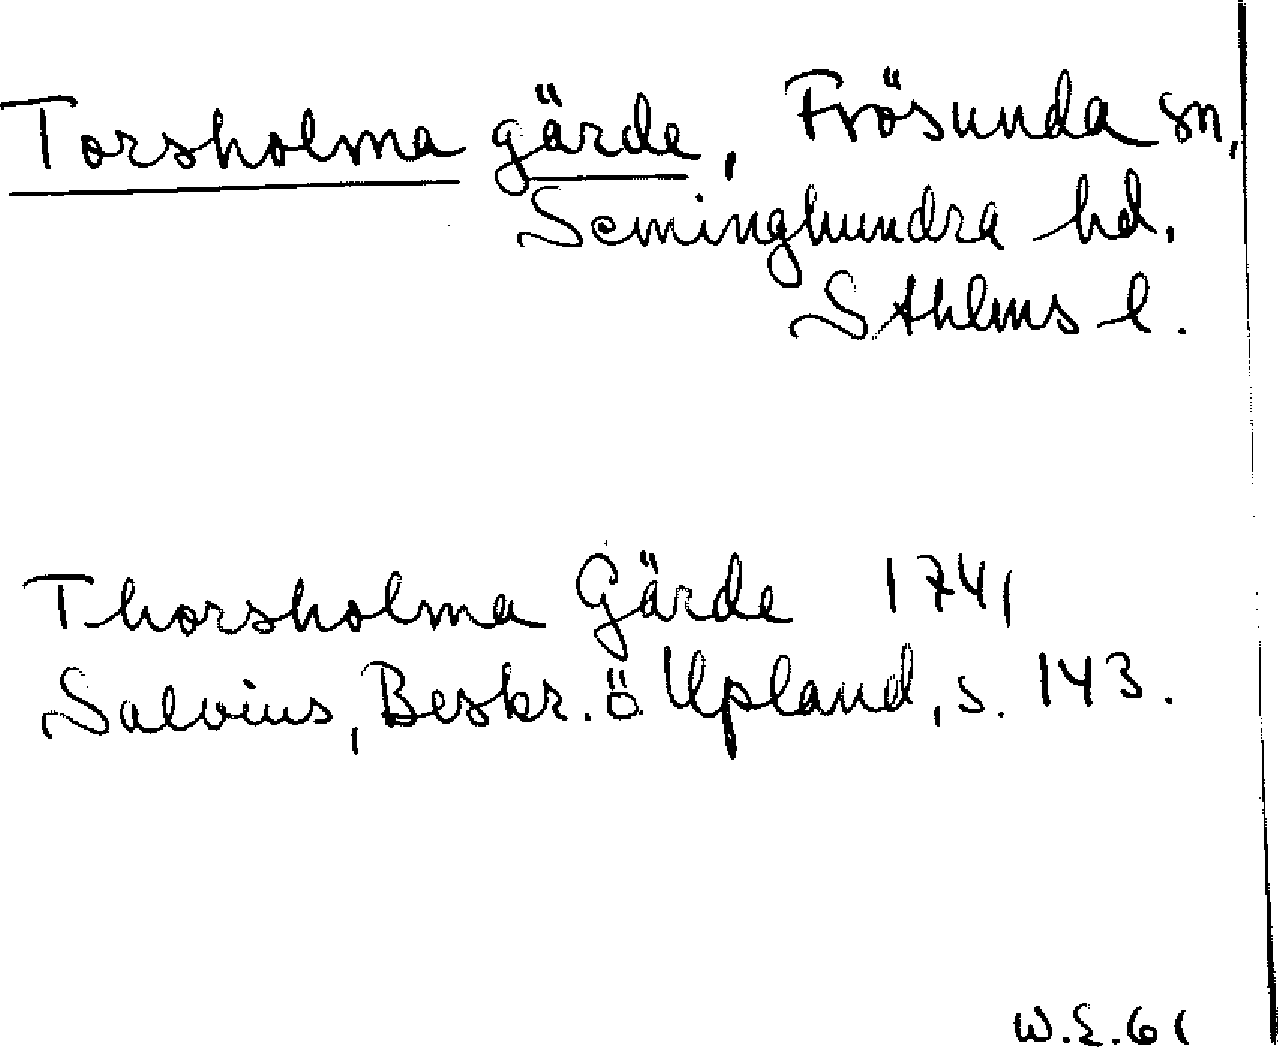 Torsholma gärde, Frösunda sn,
Seminghundra hd.
Sthlms l.
Thorsholma Gärde 1741
Salvius, Beskr. ö. Upland, s. 143.
W.E.61